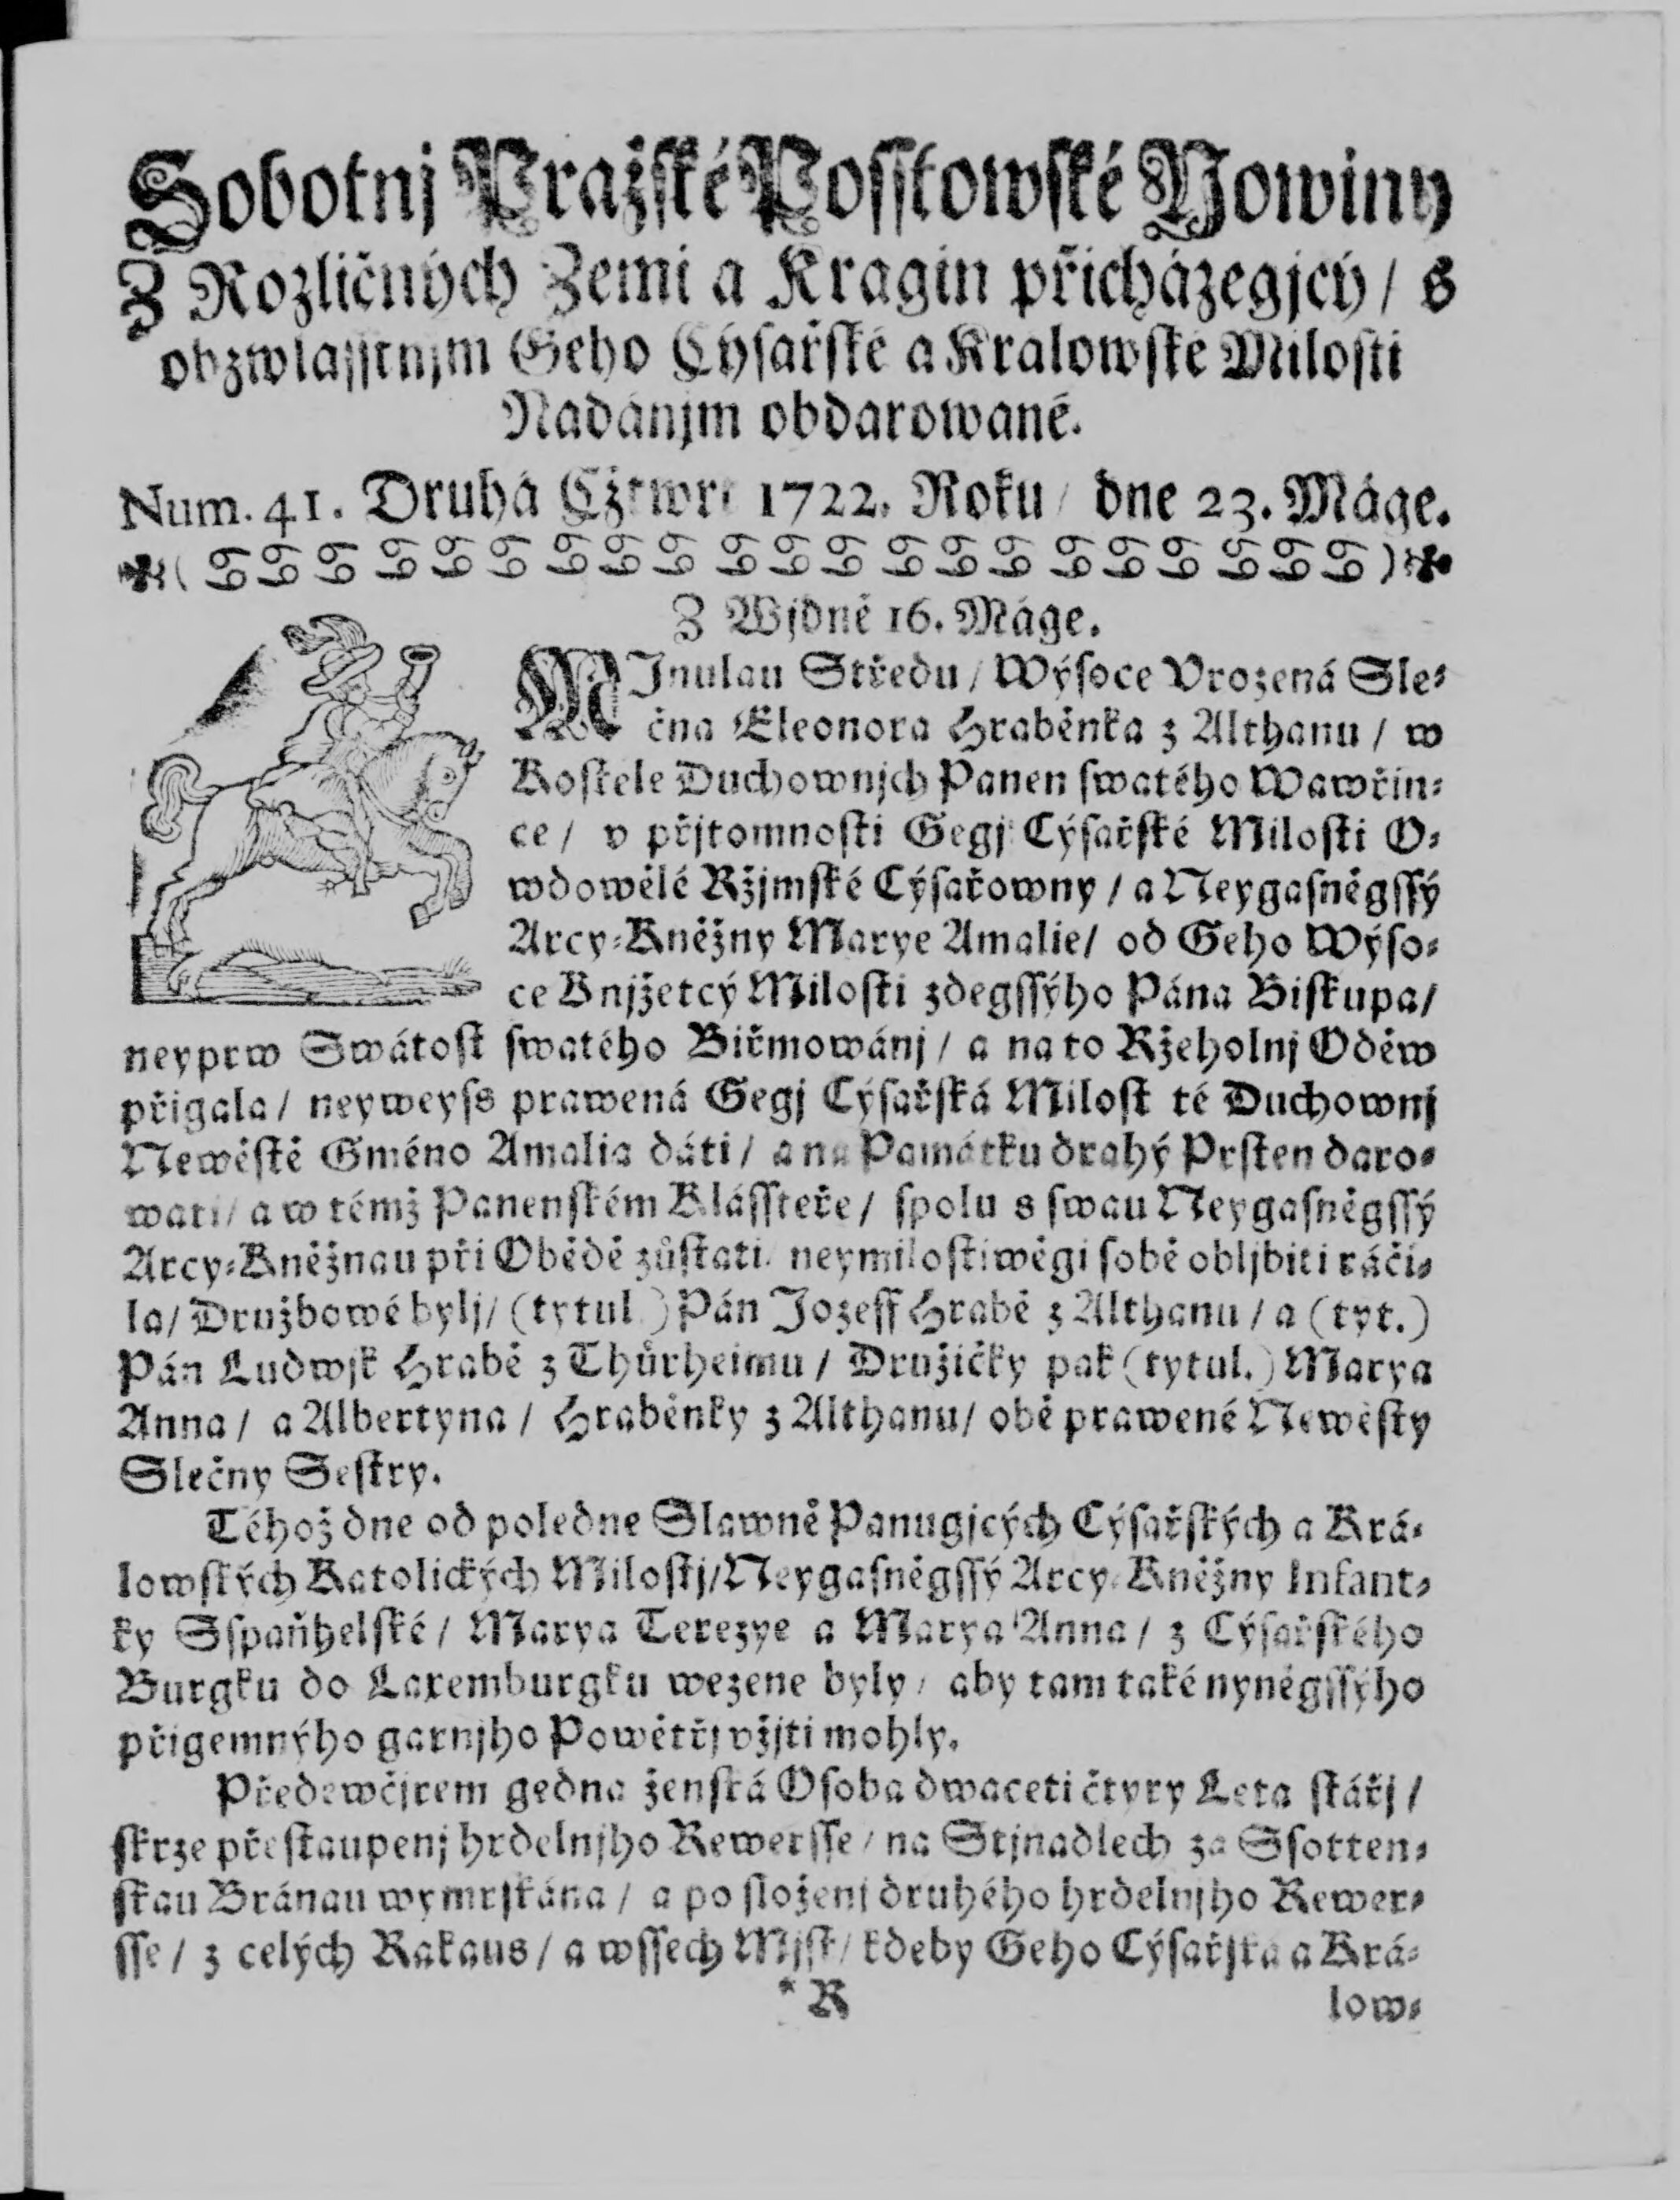 Sobotnj Pražské Posstowské Nowiny
Z Rozličných Zemi a Kragin přicházegjcý / s
obzwlasstnjm Geho Cýsařské a Kralowské Milosti
Nadánjm obdarowané.
Num. 41. Druhá Cžtwrt 1722. Roku / dne 23. Máge.
Z Wjdně 16. Máge.
MJnulau Středu / Wýsoce Vrozená Sle-
čna Eleonora Hraběnka z Althanu / w
Kostele Duchownjch Panen swatého Wawřin-
ce / v přjtomnosti Gegj Cýsařské Milosti O-
wdowělé Ržjmské Cýsařowny / a Neygasněgssý
Arcy-Kněžny Marye Amalie / od Geho Wýso-
ce Knjžetcý Milosti zdegssýho Pána Biskupa /
neyprw Swátost swatého Biřmowánj / a na to Ržeholnj Oděw
přigala / neyweyss prawená Gegj Cýsařská Milost té Duchownj
Newěstě Gméno Amalia dáti / a na Památku drahý Prsten daro-
wati / a w témž Panenském Klássteře / spolu s swau Neygasněgssý
Arcy-Kněžnau při Obědě zůstati / neymilostiwěgi sobě obljbiti ráči-
la / Družbowé bylj / (tytul.) Pán Jozeff Hrabě z Althanu / a (tyt.)
Pán Ludwjk Hrabě z Thůrheimu / Družičky pak (tytul.) Marya
Anna / a Albertyna / Hraběnky z Althanu / obě prawené Newěsty
Slečny Sestry.
Téhož dne od poledne Slawně Panugjcých Cýsařských a Krá-
lowských Katolických Milostj / Neygasněgssý Arcy-Kněžny Infant-
ky Sspaňhelské / Marya Terezye a Marya Anna / z Cýsařského
Burgku do Laxemburgku wezene byly / aby tam také nyněgssýho
přigemnýho garnjho Powětřj vžjti mohly.
Předewčjrem gedna ženská Osoba dwaceti čtyry Leta stářj /
skrze přestaupenj hrdelnjho Rewersse / na Stjnadlech za Ssotten-
skau Bránau wymrskána / a po složenj druhého hrdelnjho Rewer-
sse / z celých Rakaus / a wssech Mjst / kdeby Geho Cýsařská a Krá-
*R low-